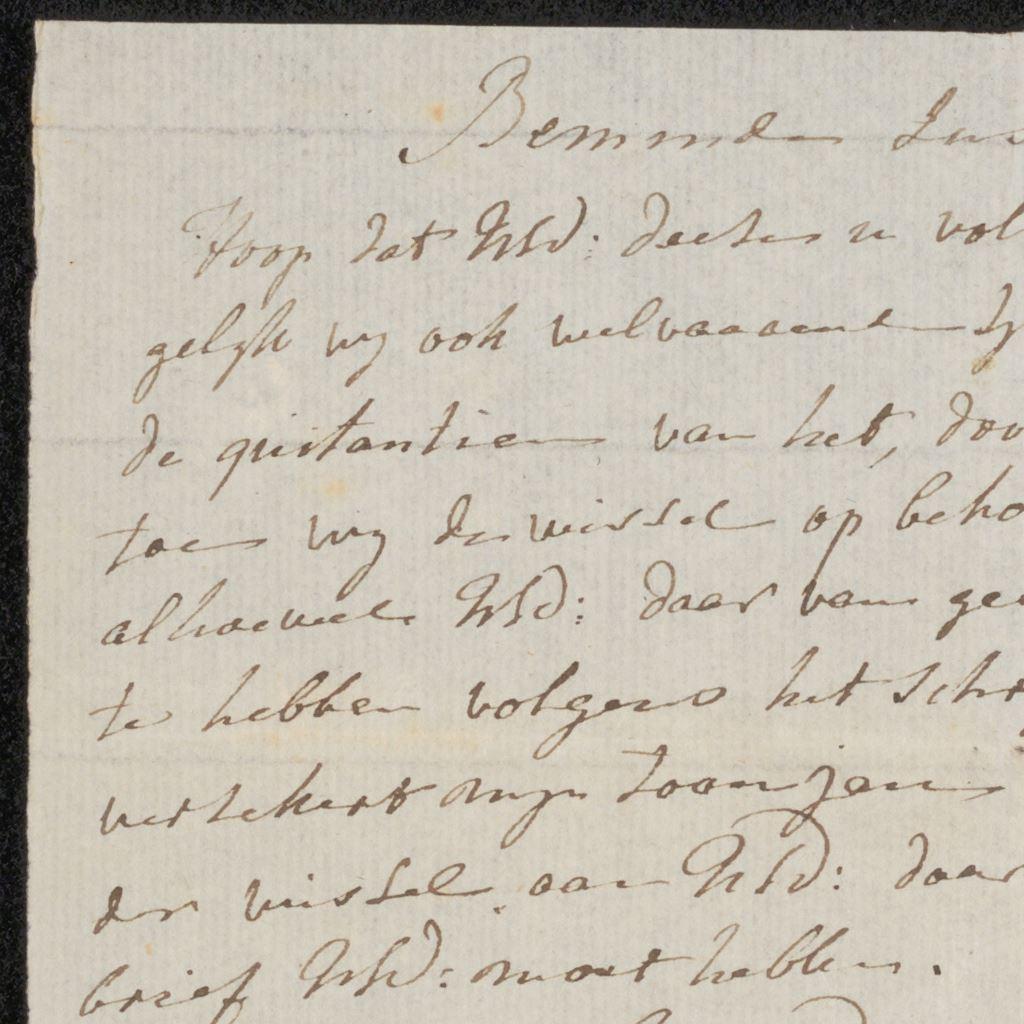 Beminde Sus
Hoop dat UEd: deesen in vol
gelijk wij ook welvaarende zij
de quitantien van het, doo
toen wij de wissel op beho
alhoewel UEd: daar van ge
te hebben volgens het schr
versekert mijn
der wissel aan UEd: daar
brief UEd: moet hebben.